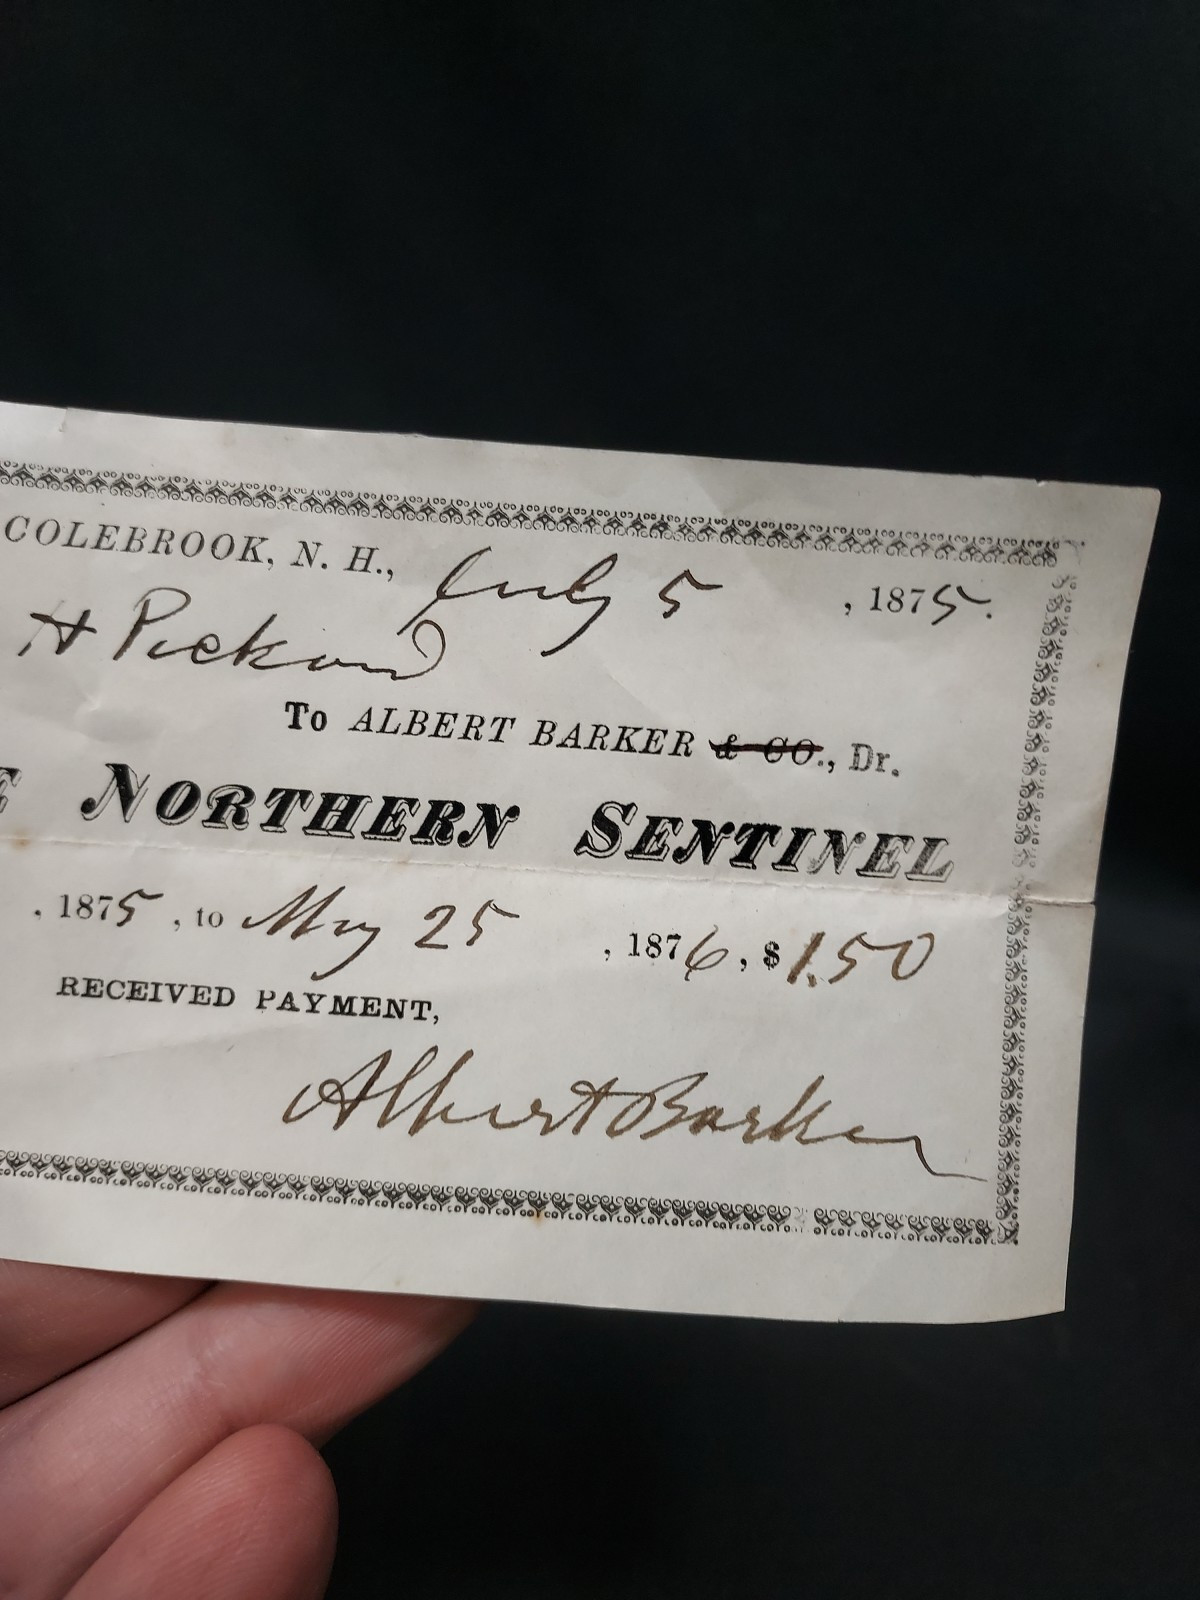 COLEBROOK, N. H., July 5, 1875.
H Pickard
To ALBERT BARKER & CO., Dr.
NORTHERN SENTINEL
, 1875, to May 25, 1876, $1.50
RECEIVED PAYMENT,
Albert Barker